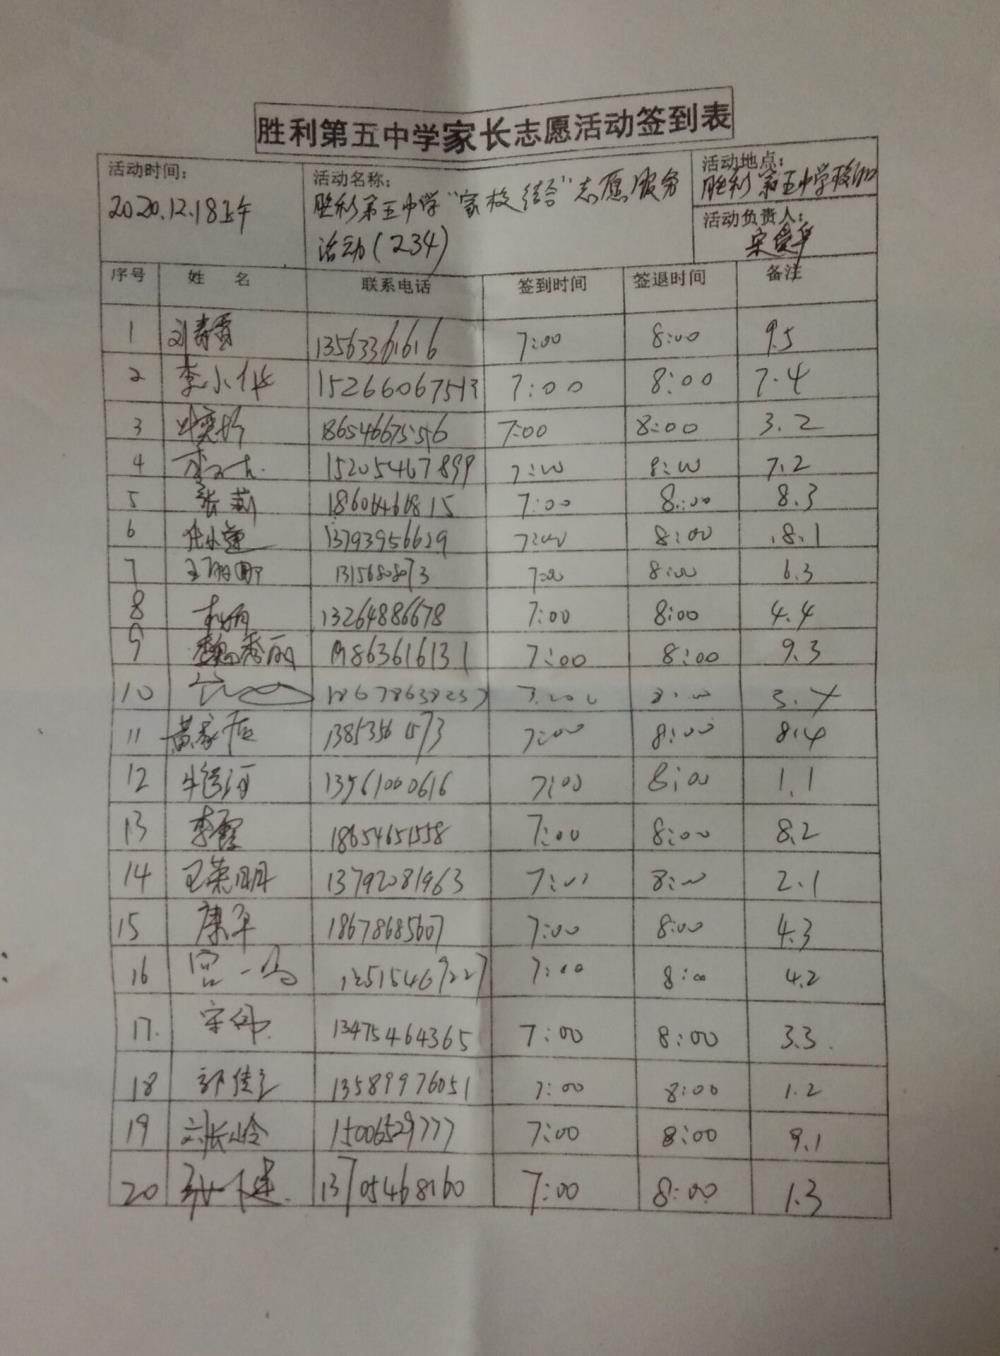 胜利第五中学家长志愿活动签到表
活动时间：
2020.12.18上午
活动名称：
胜利第五中学“家校结合”志愿服务
活动(234)
活动地点：
胜利第五中学校门口
活动负责人：
序号 姓 名 联系电话 签到时间 签退时间 备注
1 13563361616 7:00 8:00 9.5
2 李小华 15266067513 7:00 8:00 7.4
3 18654667556 7:00 8:00 3.2
4 15205467899 7:00 8:00 7.2
5 张莉 18606466815 7:00 8:00 8.3
6 13793956629 7:00 8:00 8.1
7 7:00 8:00 6.3
8 13264886678 7:00 8:00 4.4
9 魏秀丽 7:00 8:00 9.3
10 18678638237 7:00 8:00
11 7:00 8:00 8.4
12 13561000616 7:00 8:00 1.1
13 李霞 18654651558 7:00 8:00 8.2
14 王荣丽 13792081963 7:00 8:00 2.1
15 康平 18678685607 7:00 8:00 4.3
16 宫一鸣 7:00 8:00 4.2
17. 宋伟 13475464365 7:00 8:00 3.3.
18 13589976051 7:00 8:00 1.2
19 刘长岭 15006529777 7:00 8:00 9.1
20 13705468160 7:00 8:00 1.3